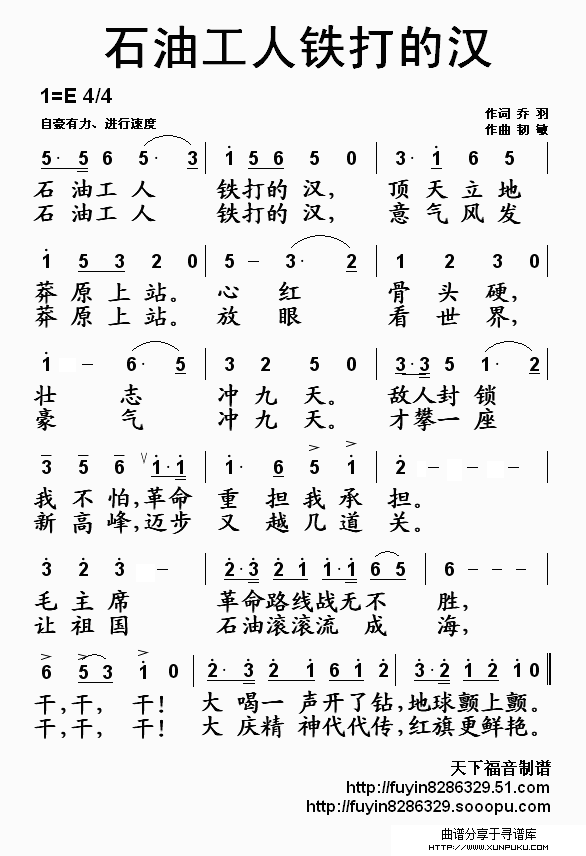 石油工人铁打的汉
1=E 4/4
作词 乔 羽
自豪有力、进行速度
作曲 韧 敏
5· 5 6 5· 3 | 1 5 6 5 0 | 3· 1 6 5
石 油 工 人 铁 打 的 汉， 顶 天 立 地
石 油 工 人 铁 打 的 汉， 意 气 风 发
1 5 3 2 0 | 5 – 3· 2 | 1 2 3 0
莽 原 上 站。 心 红 骨 头 硬，
莽 原 上 站。 放 眼 看 世 界，
1 – 6· 5 | 3 2 5 0 | 3· 3 5 1· 2
壮 志 冲 九 天。 敌 人 封 锁
豪 气 冲 九 天。 才 攀 一 座
3 5 6 1· 1 | 1· 6 5 1 | 2 – – –
我 不 怕，革 命 重 担 我 承 担。
新 高 峰，迈 步 又 越 几 道 关。
3 2 3 – | 2· 3 2 1 1· 1 6 5 | 6 – – –
毛 主 席 革 命 路 线 战 无 不 胜，
让 祖 国 石 油 滚 滚 流 成 海，
6 5 3 1 0 | 2· 3 2 1 6· 1 2 | 3· 2 1 2 1 0
干，干， 干！ 大 喝 一 声 开 了 钻，地 球 颤 上 颤。
干，干， 干！ 大 庆 精 神 代 代 传，红 旗 更 鲜 艳。
天下福音制谱
http://fuyin8286329.51.com
http://fuyin8286329.sooopu.com
曲谱分享于寻谱库
HTTP://WWW.XUNPUKU.COM